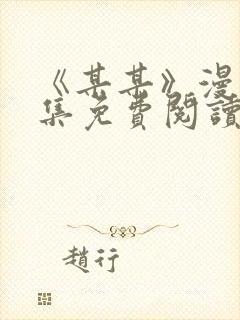 《某某》漫
集免費閱讀
趙行